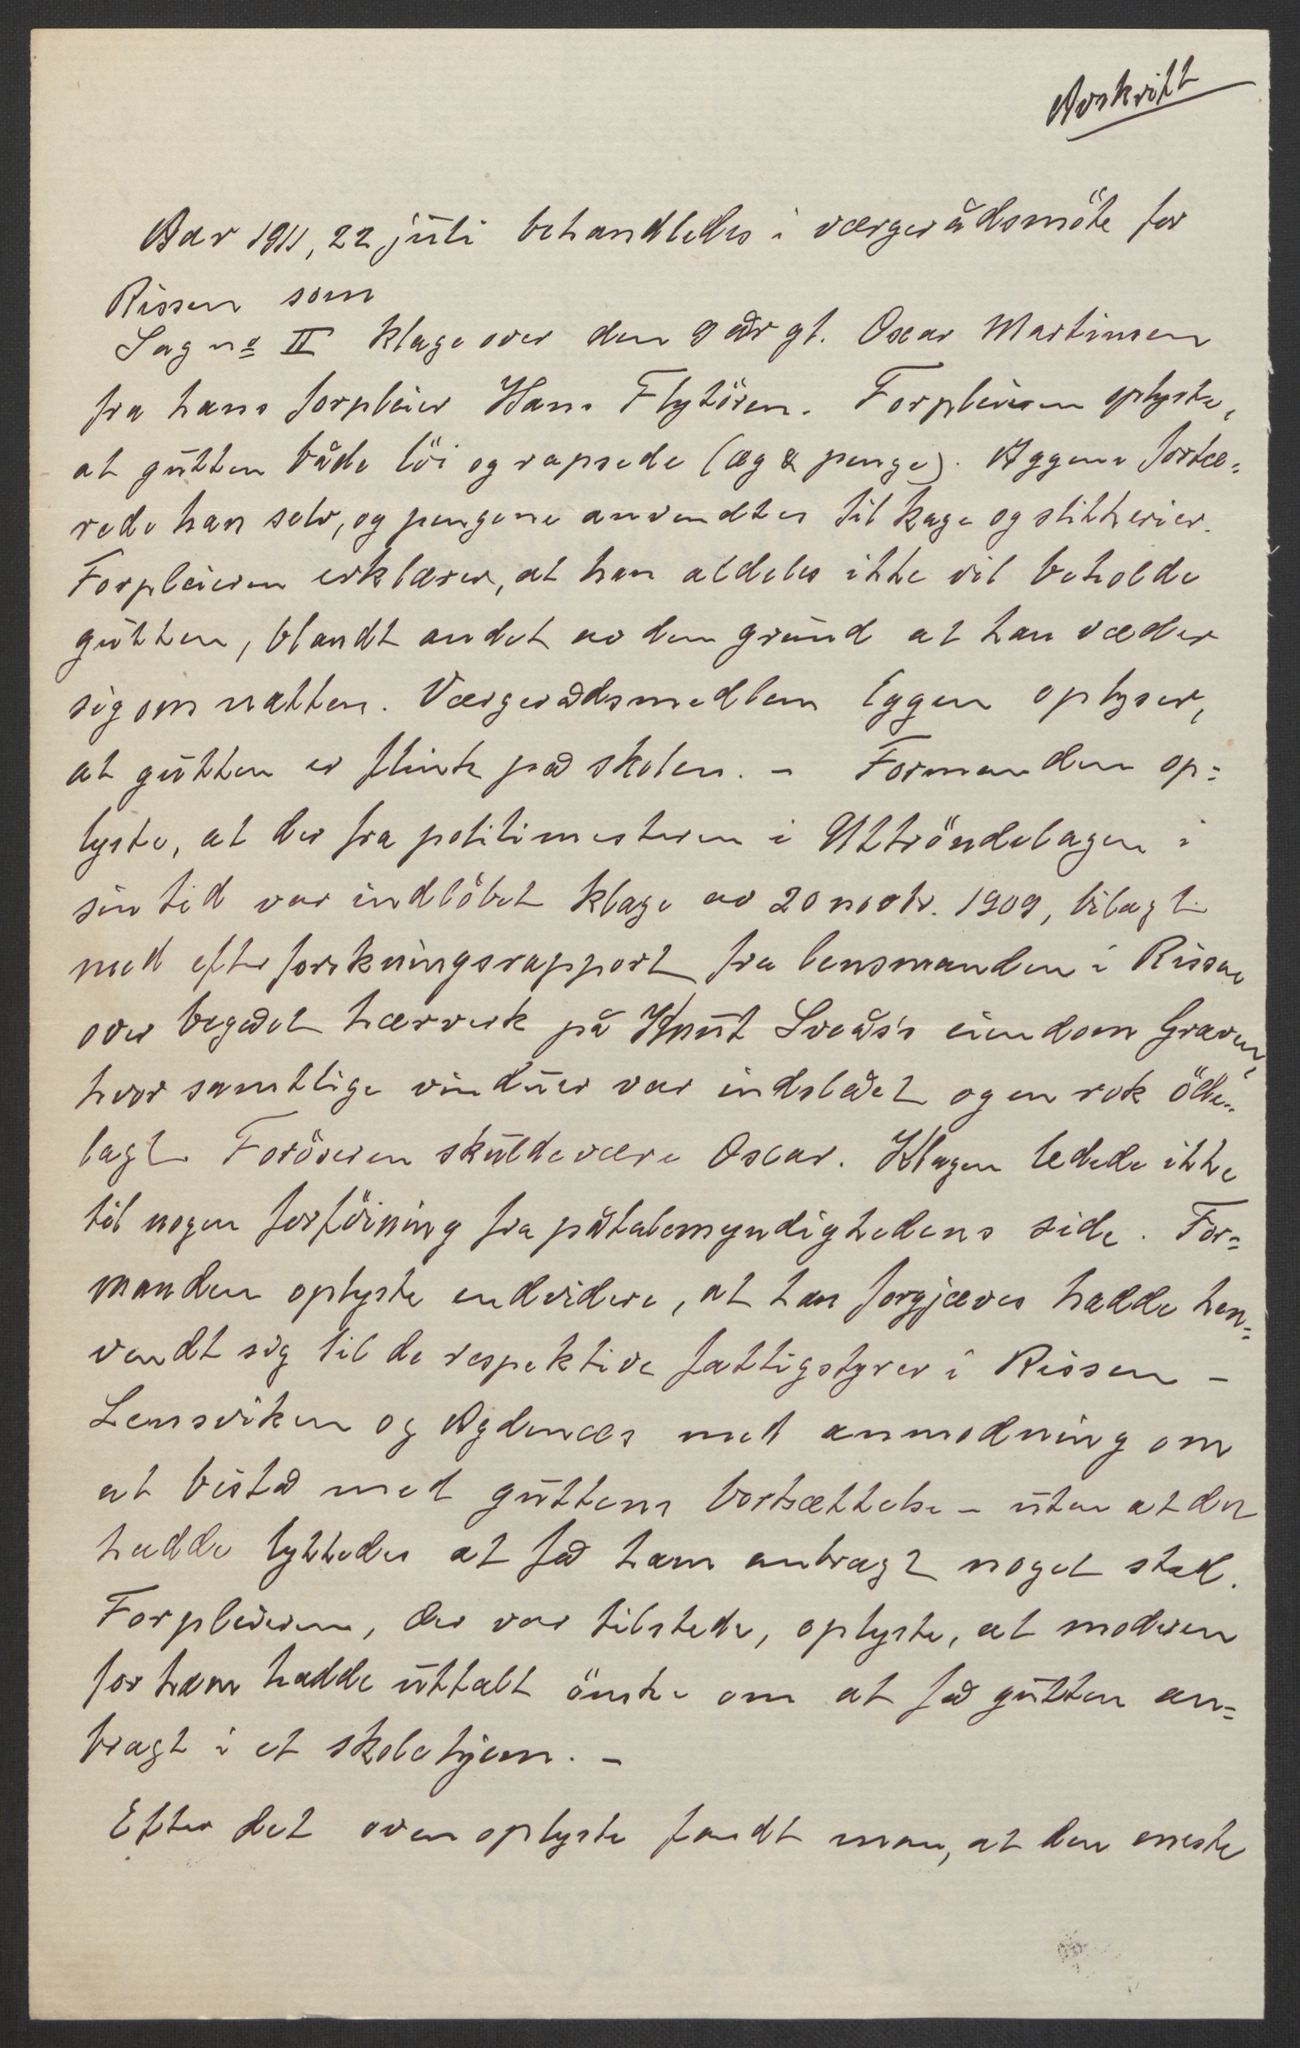 Avskrift
Aar 1911, 22 juli behandledes i værgerådsmöte for
Rissen som
Sag no II klage over den 9 aar gl. Oscar Martinsen
fra hans forpleier Hans Flytören. Forpleieren oplyste,
at gutten både löi og rapsede (æg & penge). Æggene fortæ=
rede han selv, og pengene anvendtes til kage og slikkerier.
Forpleieren erklærer, at han aldeles ikke vil beholde
gutten, blandt andet av den grund at han væder
sig om natten. Værgeraadsmedlem Eggen oplyser,
at gutten er flink paa skolen. – Formanden op=
lyste, at der fra politimesteren i Uttröndelagen i
sin tid var indlöbet klage av 20 novbr. 1909, bilagt
med efterforskningsrapport fra lensmanden i Rissen
over begaaet hærverk på Knut Sveås's eiendom Graven,
hvor samtlige vinduer var indslaaet og en rok öde=
lagt Foröveren skulde være Oscar. Klagen ledede ikke
til nogen forföining fra påtalemyndighedens side. For=
manden oplyste endvidere, at han forgjæves hadde hen=
vendt sig til de respektive fattigstyrer i Rissen –
Lensviken og Agdenæs med anmodning om
at bistaa med guttens bortsættelse – uten at det
hadde lykkedes at faa ham anbragt noget sted.
Forpleieren, der var tilstede, oplyste, at moderen
for ham hadde uttalt önske om at faa gutten an=
bragt i et skolehjem. –
Efter det ovenoplyste fandt man, at den eneste